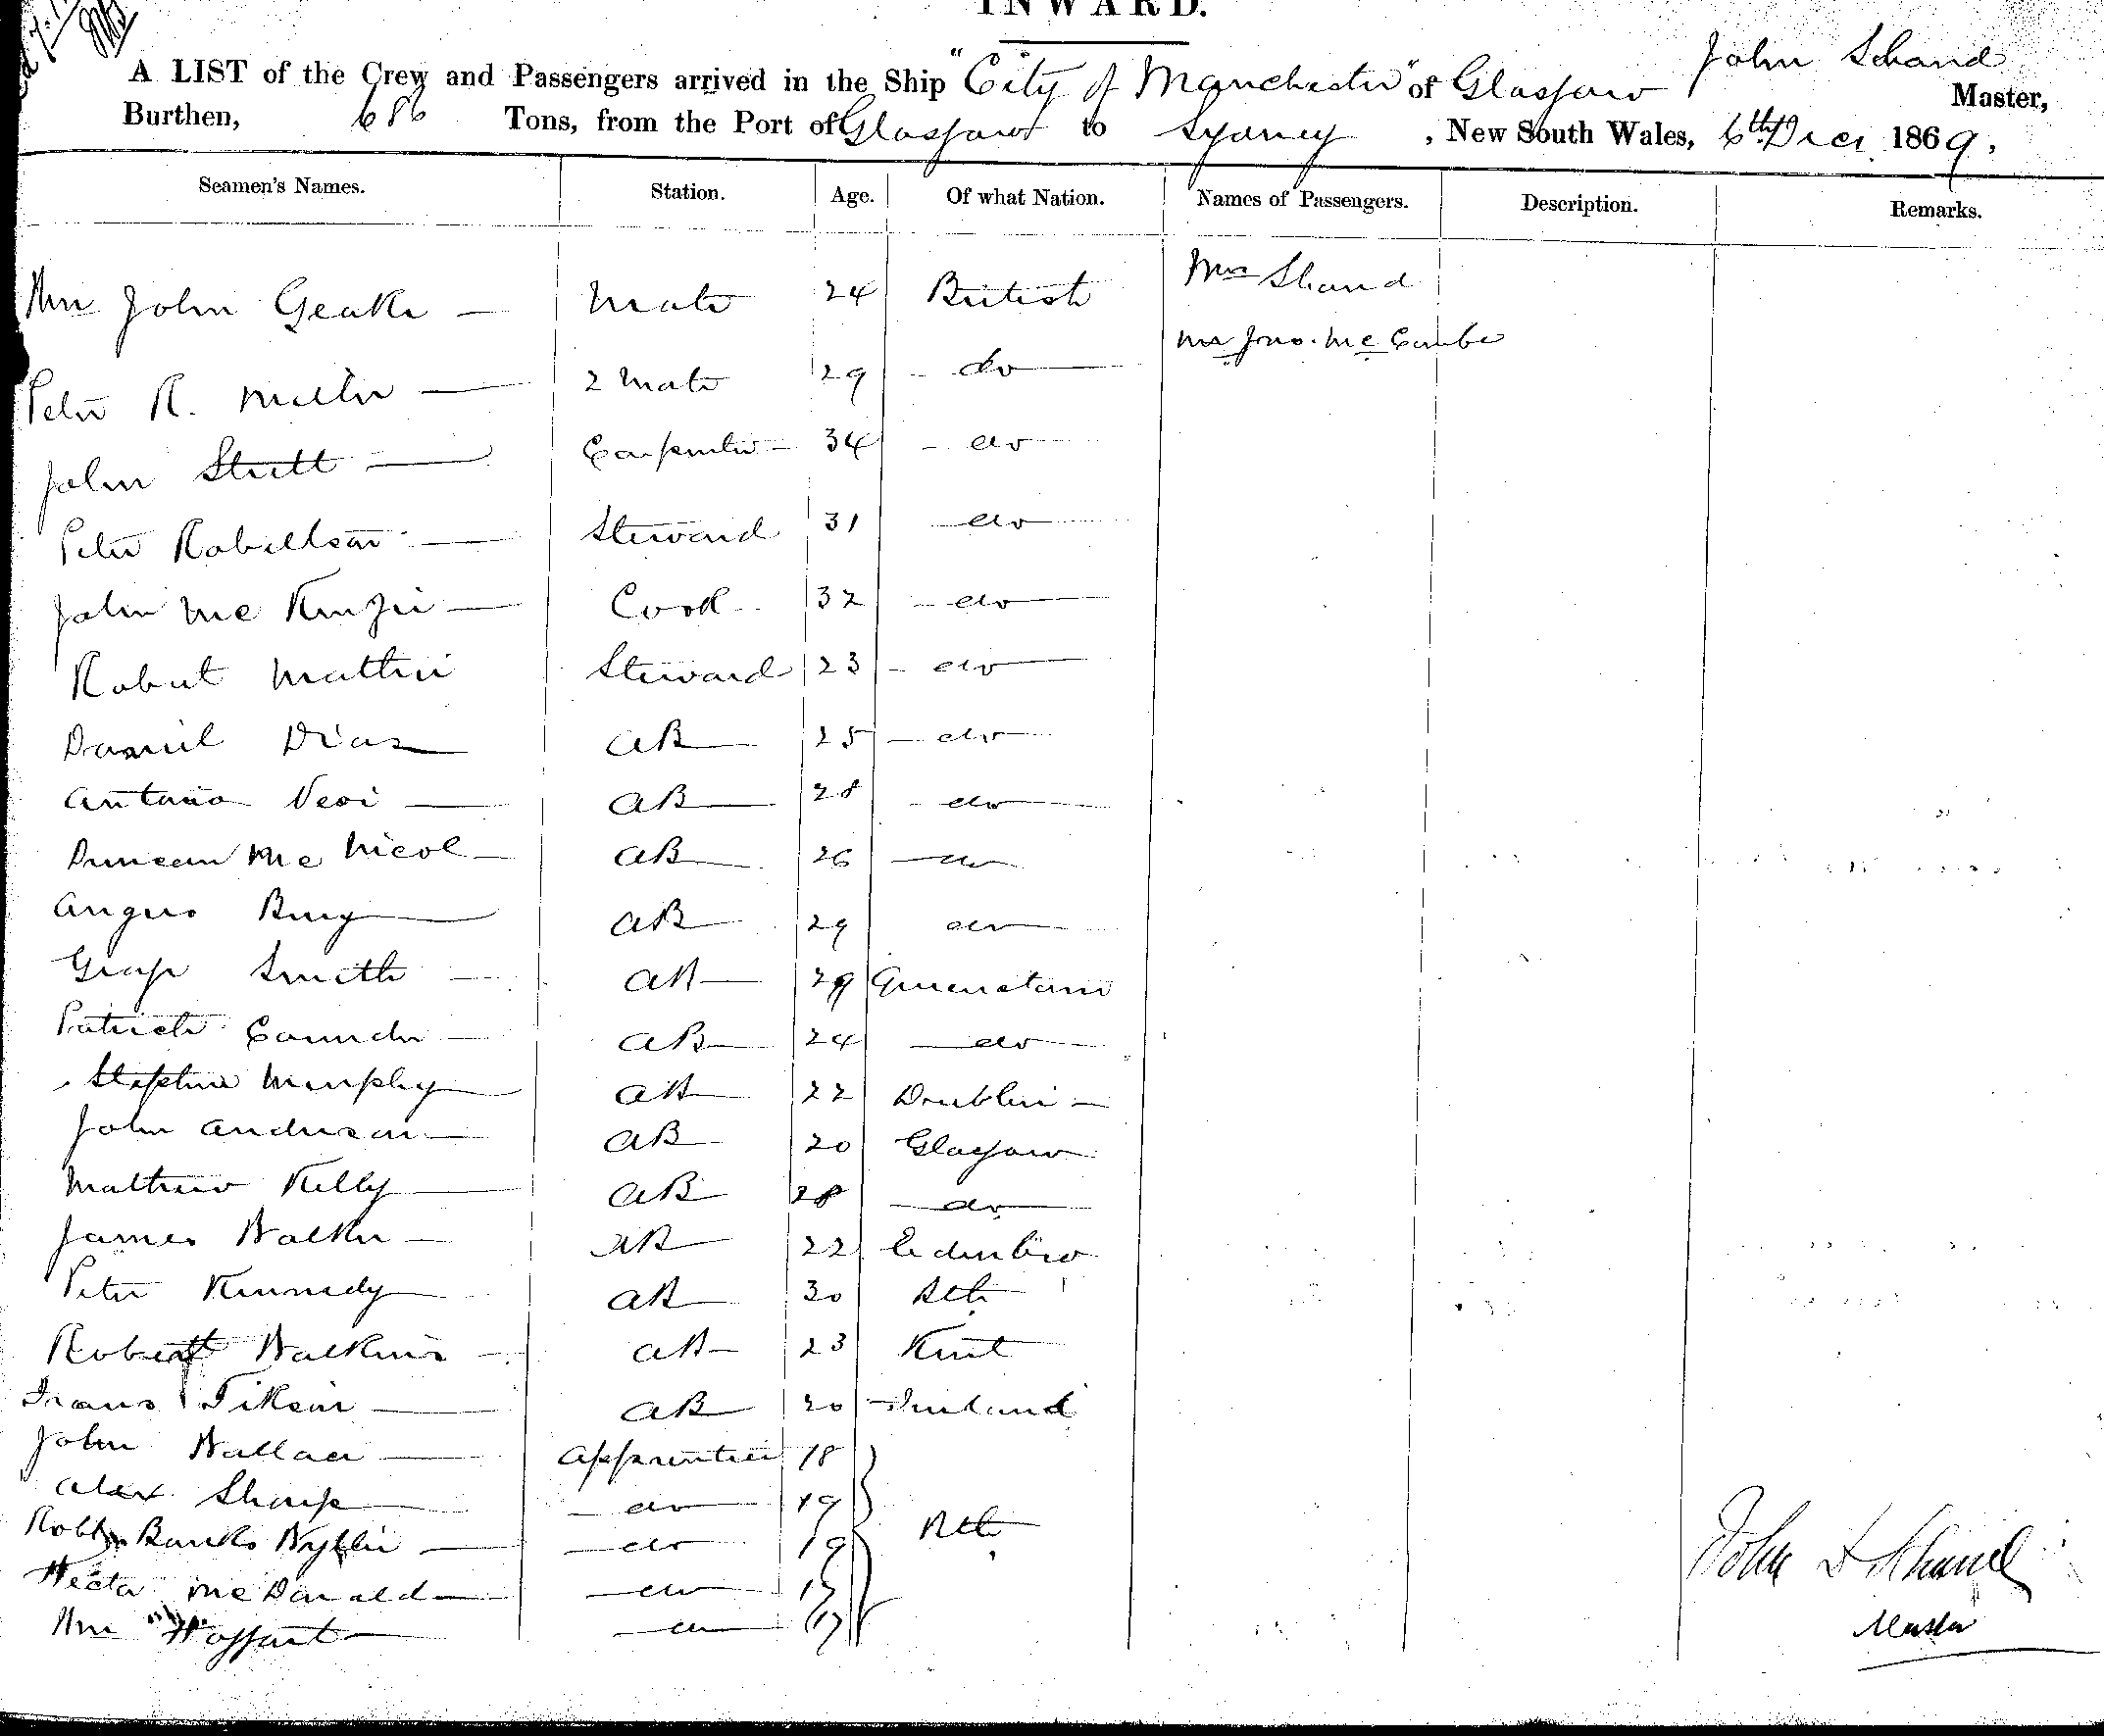 INWARD.
A LIST of the Crew and Passengers arrived in the Ship "City of Manchester" of Glasgow John Shand Master,
Burthen, 686 Tons, from the Port of Glasgow to Sydney, New South Wales, 6th Decr 1869.
Seamen's Names. Station. Age. Of what Nation. Names of Passengers. Description. Remarks.
Wm John Geake Mate 24 British Mrs Shand
Mr Jno. McCombe
Peter R. Miller 2 Mate 29 do
John Strett Carpenter 34 do
Peter Robertson Steward 31 do
John McKenzie Cook 32 do
Robert Matthew Steward 23 do
Daniel Dias AB 25 do
Antonio AB 28 do
Duncan McNicol AB 26 do
Angus AB 29 do
Smith AB 29 Queenstown
Patrick AB 24 do
Stephen Murphy AB 22 Dublin
John Anderson AB 20 Glasgow
Mathew Kelly AB 28 do
James Walker AB 22 Edinbro
Peter Kennedy AB 30
Robert Watkins AB 23 Kent
Frans AB 20 Finland
John Wallace Apprentice 18
Alex Sharp do 19
Robt Banks Wyllie do 19
Hector McDonald do 17
Wm do 17
John Shand
Master